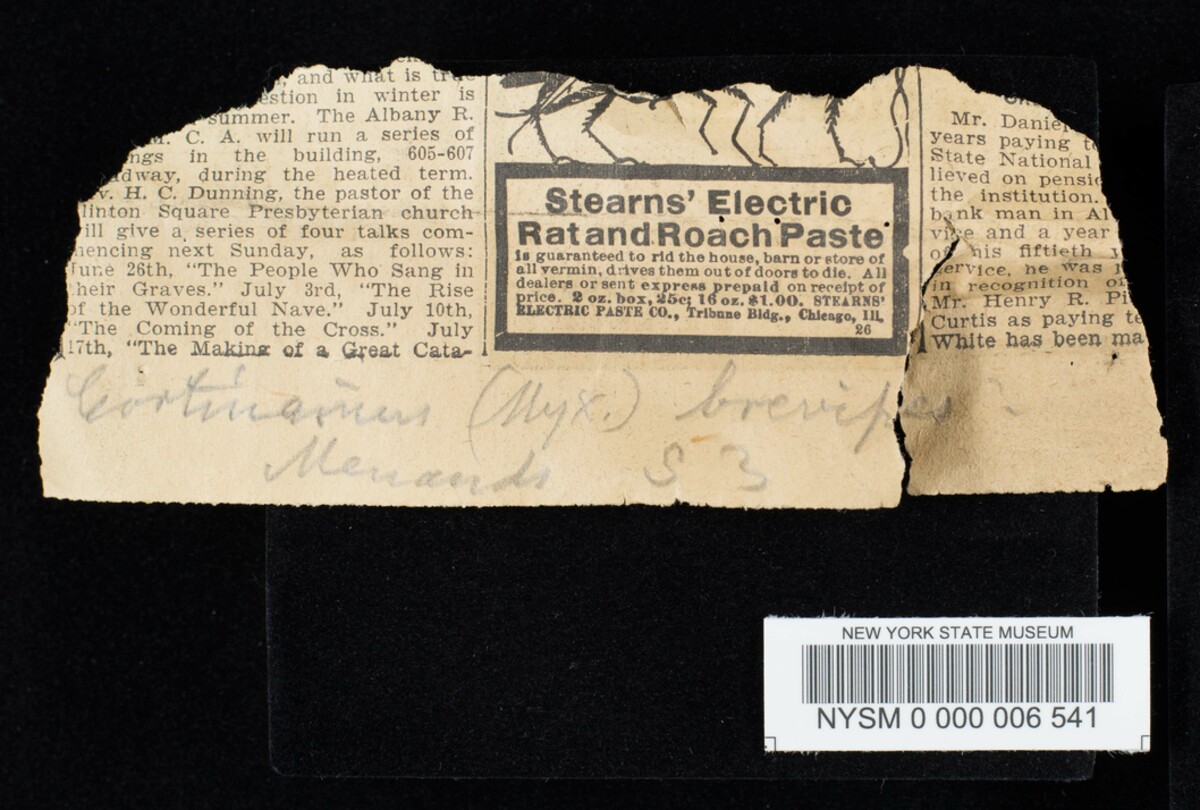 , and what is true
estion in winter is
summer. The Albany R.
M. C. A. will run a series of
ngs in the building, 605-607
adway, during the heated term.
v. H. C. Dunning, the pastor of the
linton Square Presbyterian church
ill give a series of four talks com-
encing next Sunday, as follows:
June 26th, "The People Who Sang in
heir Graves." July 3rd, "The Rise
of the Wonderful Nave." July 10th,
"The Coming of the Cross." July
17th, "The Making of a Great Cata-
Stearns' Electric
Rat and Roach Paste
is guaranteed to rid the house, barn or store of
all vermin, drives them out of doors to die. All
dealers or sent express prepaid on receipt of
price. 2 oz. box, 25c; 16 oz. $1.00. STEARNS'
ELECTRIC PASTE CO., Tribune Bldg., Chicago, Ill.
26
Mr. Danie
years paying te
State National
lieved on pensio
the institution.
bank man in Al
vice and a year
of his fiftieth y
service, he was
in recognition of
Mr. Henry R. Pi
Curtis as paying te
White has been ma
Cortinarius (Myx.) brevipes
Menands S 3
NEW YORK STATE MUSEUM
NYSM 0 000 006 541